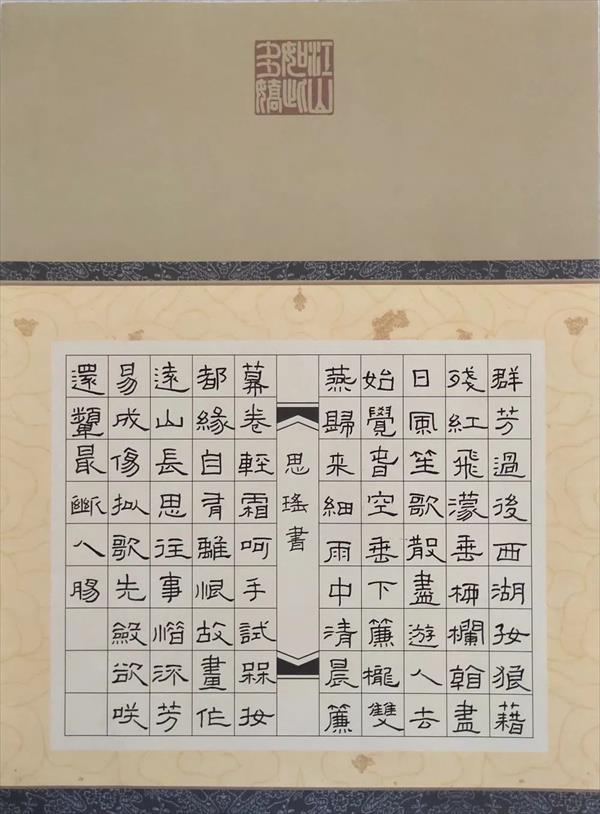 江山
如此
多嬌
群芳過後西湖好狼藉
殘紅飛濛垂柳欄幹盡
日風笙歌散盡遊人去
始覺春空垂下簾櫳雙
燕歸来細雨中清晨簾
思瑤書
幕卷輕霜呵手試槑妝
都緣自有離恨故畫作
遠山長思往事惜流芳
易成傷拟歌先斂欲咲
還顰最斷人腸